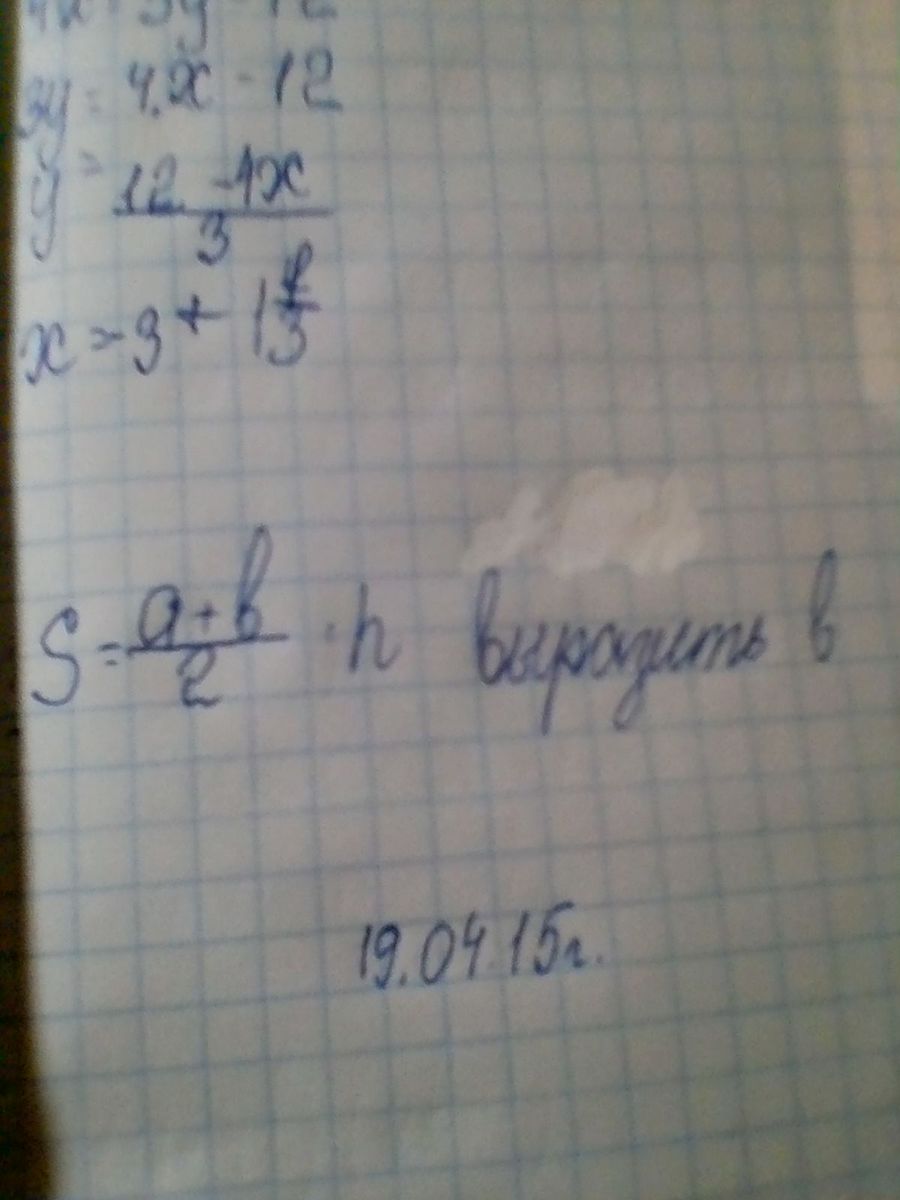 3y = 4x - 12
y = 12 - 4x / 3
x = 3 + 1
S = a+b / 2 · h выразить b
19.04.15г.